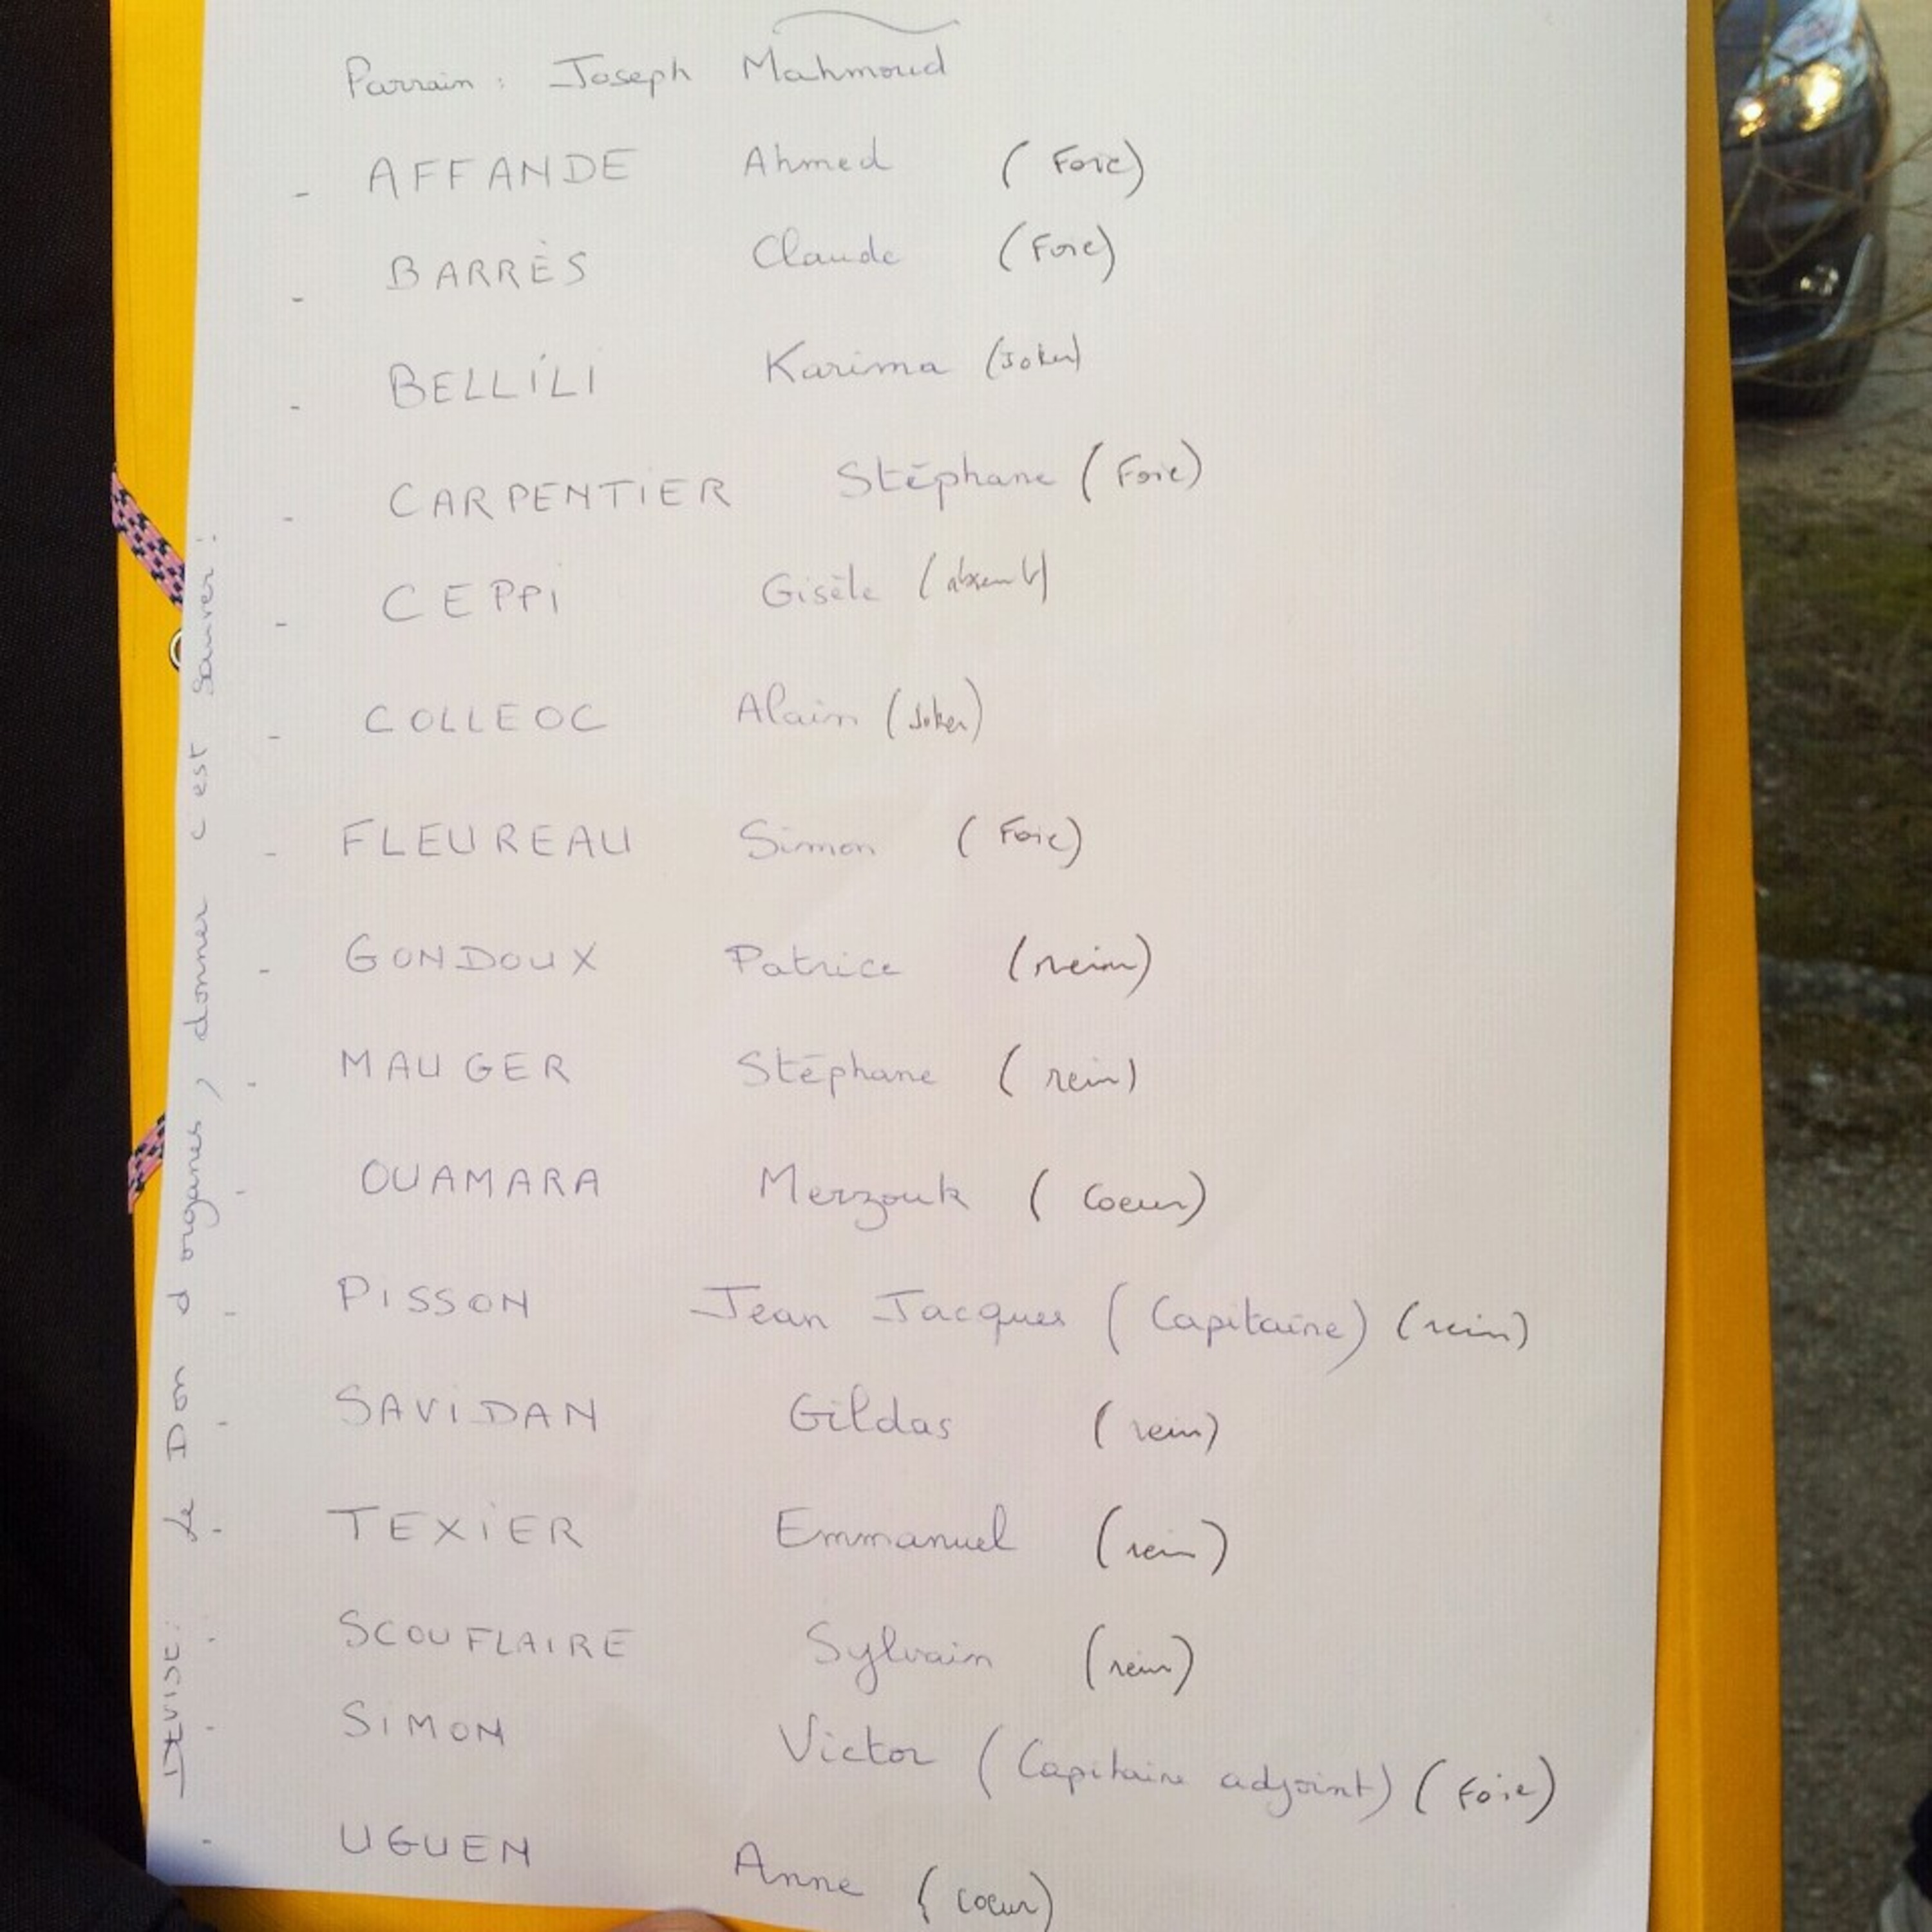 Parrain : Joseph Mahmoud
- AFFANDE Ahmed (Foie)
- BARRÈS Claude (Foie)
- BELLILI Karima (Joker)
- CARPENTIER Stéphane (Foie)
- CEPPI Gisèle (absent)
- COLLEOC Alain (Joker)
- FLEUREAU Simon (Foie)
- GONDOUX Patrice (rein)
- MAUGER Stéphane (rein)
- OUAMARA Merzouk (Coeur)
- PISSON Jean Jacques (Capitaine) (rein)
- SAVIDAN Gildas (rein)
- TEXIER Emmanuel (rein)
- SCOUFLAIRE Sylvain (rein)
- SIMON Victor (Capitaine adjoint) (Foie)
- UGUEN Anne (coeur)
DEVISE : Le Don d organes, donner c est sauver !